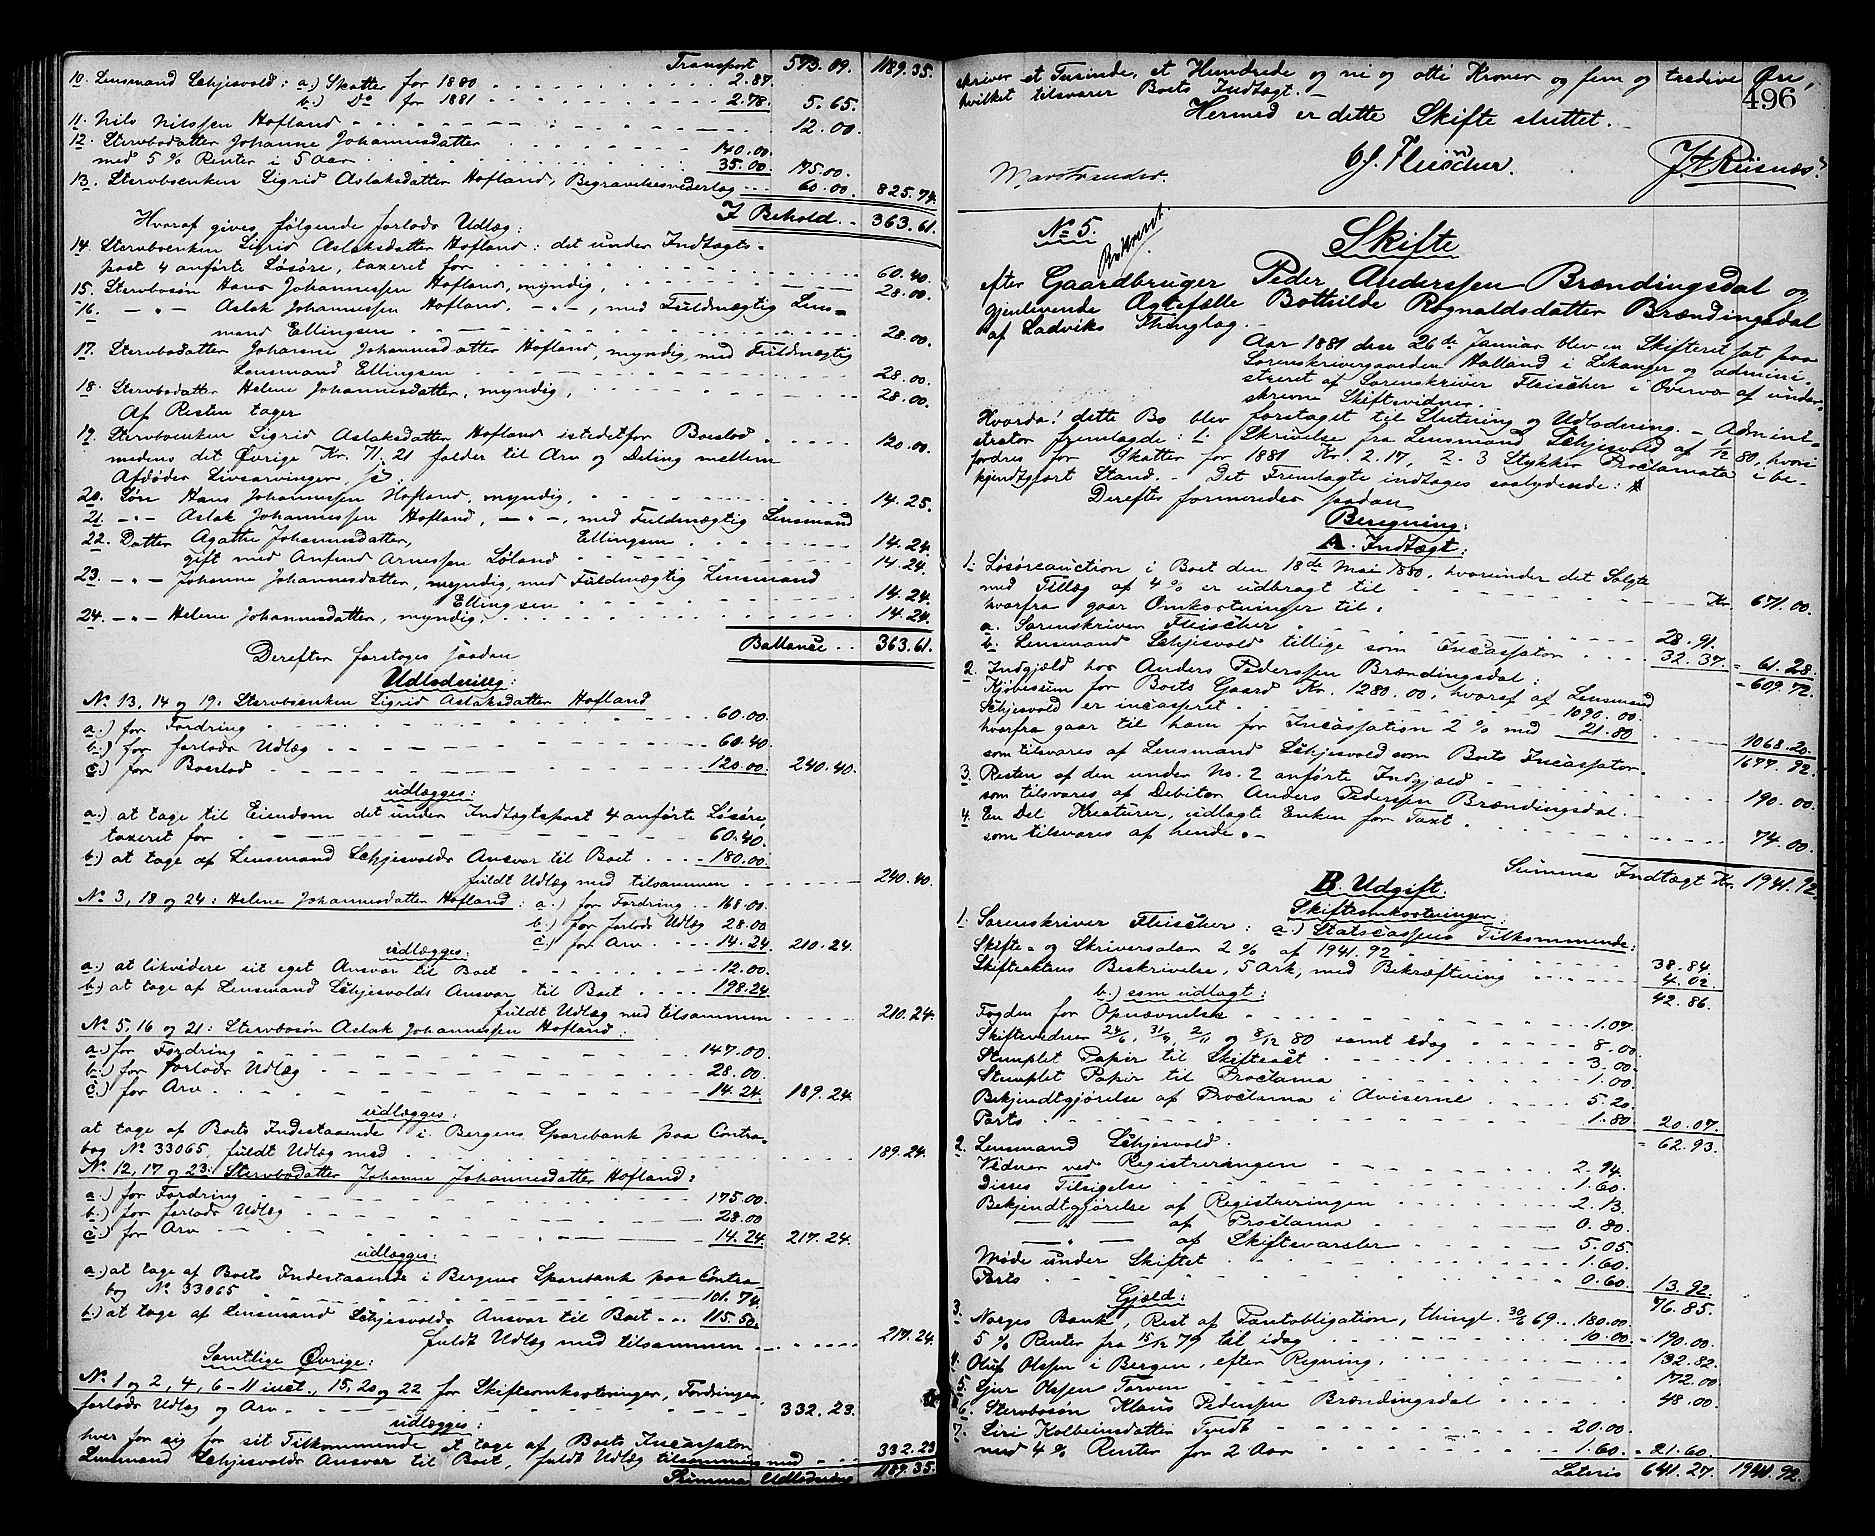 Transport 573.09. 1189.35.
10. Lensmand Schjesvold: a.) Skatter for 1880 2.87
b.) Do for 1881 2.78. 5.65.
11. Nils Nilssen Hofland 12.00.
12. Stervbodatter Johanne Johannesdatter 140.00.
med 5 % Renter i 5 Aar 35.00. 175.00.
13. Stervboenken Sigrid Aslaksdatter Hofland, Begravelsesvederlag 60.00. 825.74.
I Behold 363.61.
Hvoraf gives følgende forlods Udlæg:
14. Stervboenken Sigrid Aslaksdatter Hofland: det under Indtægts-
post 4 anførte Løsøre, taxeret for 60.40.
15. Stervbosøn Hans Johannessen Hofland, myndig, 28.00.
16. —„— Aslak Johannessen Hofland, —„—, med Fuldmægtig Lens-
mand Ellingsen 28.00.
17. Stervbodatter Johanne Johannesdatter Hofland, myndig, med Fuldmægtig
Lensmand Ellingsen 28.00.
18. Stervbodatter Helene Johannesdatter, myndig, 28.00.
Af Resten tager
19. Stervboenken Sigrid Aslaksdatter Hofland istedetfor Boeslod 120.00.
medens det Øvrige Kr. 71.21 falder til Arv og Deling mellem
Afdødes Livsarvinger,
20. Søn Hans Johannessen Hofland, myndig, 14.25.
21. —„— Aslak Johannessen Hofland, —„—, med Fuldmægtig Lensmand
Ellingsen 14.24.
22. Datter Agathe Johannesdatter,
gift med Anfind Arnessen Løland 14.24.
23. —„— Johanne Johannesdatter, myndig, med Fuldmægtig Lensmand
Ellingsen 14.24.
24. —„— Helene Johannesdatter, myndig, 14.24.
Ballance 363.61.
Derefter foretoges saadan
Udlodning:
No 13, 14 og 19: Stervboenken Sigrid Aslaksdatter Hofland
a.) for Fordring 60.00.
b.) for forlods Udlæg 60.40.
c.) for Boeslod 120.00. 240.40.
udlægges:
a.) at tage til Eiendom det under Indtægtspost 4 anførte Løsøre,
taxeret for 60.40.
b.) at tage af Lensmand Schjesvolds Ansvar til Boet 180.00.
fuldt Udlæg med tilsammen 240.40.
No 3, 18 og 24: Helene Johannesdatter Hofland: a.) for Fordring 168.00.
b.) for forlods Udlæg 28.00
c.) for Arv 14.24 210.24.
udlægges:
a.) at likvidere sit eget Ansvar til Boet 12.00.
b.) at tage af Lensmand Schjesvolds Ansvar til Boet 198.24
fuldt Udlæg med tilsammen 210.24.
No 5, 16 og 21: Stervbosøn Aslak Johannessen Hofland:
a.) for Fordring 147.00.
b.) for forlods Udlæg 28.00.
c.) for Arv 14.24. 189.24.
udlægges:
at tage af Boets Indestaaende i Bergens Sparebank paa Contra-
bog No 33065, fuldt Udlæg med 189.24.
No 12, 17 og 23: Stervbodatter Johanne Johannesdatter Hofland:
a.) for Fordring 175.00.
b.) for forlods Udlæg 28.00
c.) for Arv 14.24. 217.24.
udlægges:
a.) at tage af Boets Indestaaende i Bergens Sparebank paa Contra
bog No 33065 101.74.
b.) at tage af Lensmand Schjesvolds Ansvar til Boet 115.50.
fuldt Udlæg med tilsammen 217.24.
Samtlige Øvrige:
No 1 og 2, 4, 6–11 incl., 15, 20 og 22 for Skifteomkostninger, Fordringer,
forlods Udlæg og Arv 332.23.
udlægges:
hver for sig for sit Tilkommende at tage af Boets Incassator
Lensmand Schjesvolds Ansvar til Boet, fuldt Udlæg tilsammen med 332.23
Summa Udlodning 1189.35.
skriver et Tusinde, et Hundrede og ni og otti Kroner og fem og tredive Øre,
hvilket tilsvarer Boets Indtægt.
496
Hermed er dette Skifte sluttet.
Fleischer.
Marstrander.
J. A. Riisnæs
No 5.
Skifte
efter Gaardbruger Peder Anderssen Brændingsdal og
gjenlevende Ægtefælle Bothilde Rognaldsdatter Brændingsdal
af Ladviks Thinglag.
Aar 1881 den 26de Januar blev en Skifteret sat paa
Sorenskrivergaarden Halland i Lekanger og admini-
streret af Sorenskriver Fleischer i Overvær af under-
skrevne Skiftevidner.
Hvorda! dette Bo blev foretaget til Slutning og Udlodning. – Admini-
strator fremlagde: 1. Skrivelse fra Lensmand Schjesvold af 1/12 80, hvori
fordres for Skatter for 1881 Kr. 2.17, 2. 3 Stykker Proclamata i be-
kjendtgjort Stand. – Det Fremlagte indtages saalydende:
Derefter formeredes saadan
Beregning:
A. Indtægt:
1. Løsøreauction i Boet den 18de Mai 1880, hvorunder det Solgte
med Tillæg af 4 % er udbragt til Kr. 671.00.
hvorfra gaar Omkostninger til:
a. Sorenskriver Fleischer 28.91.
b. Lensmand Schjesvold tillige som Incassator 32.37. - 61.28
- 609.72.
2. Indgjæld hos Anders Pederssen Brændingsdal:
Kjøbesum for Boets Gaard Kr. 1280.00, hvoraf af Lensmand
Schjesvold er incasseret 1090.00.
hvorfra gaar til ham for Incassation 2 % med 21.80 1068.20.
som tilsvares af Lensmand Schjesvold som Boets Incassator. 1677.92.
3. Resten af den under No. 2 anførte Indgjæld
som tilsvares af Debitor Anders Pederssen Brændingsdal. 190.00.
4. En Del Kreaturer, udlagte Enken for Taxt
som tilsvares af hende. 74.00.
Summa Indtægt Kr. 1941.92
B. Udgift.
Skifteomkostninger:
1. Sorenskriver Fleischer: a.) Statscassens Tilkommende:
Skifte- og Skriversalær 2 % af 1941.92 38.84
Skifteaktens Beskrivelse, 5 Ark, med Bekræftning 4.02.
42.86.
b.) som udlagt:
Fogden for Opnævnelse 1.07.
Skiftevidner 24/6, 31/8, 2/11 og 8/12 80 samt idag 8.00
Stemplet Papir til Skifteact 3.00
Stemplet Papir til Proclama 1.00
Bekjendtgjørelse af Proclama i Aviserne 5.20.
Porto 1.80 20.07.
- 62.93.
2. Lensmand Schjesvold.
Vidner ved Registreringen 2.94.
Disses Tilsigelse 1.60.
Bekjendtgjørelse af Registreringen 2.13.
—„— af Proclama 0.80.
—„— af Skiftevarsler 5.05.
Møde under Skiftet 1.60.
Porto 0.60. 13.92.
76.85.
Gjæld:
3. Norges Bank, Rest af Pantobligation, thingl. 30/6 69 180.00.
5 % Renter fra 15/12 79 til idag 10.00 - 190.00.
4. Oluf Olssen i Bergen, efter Regning, 132.82.
5. Sjur Olssen Torven 172.00
6. Stervbosøn Klaus Pederssen Brændingsdal 48.00.
7. Siri Kolbeinsdatter Tvedt 20.00
med 4 % Renter for 2 Aar 1.60 - 21.60.
Lateris 641.27. 1941.92.